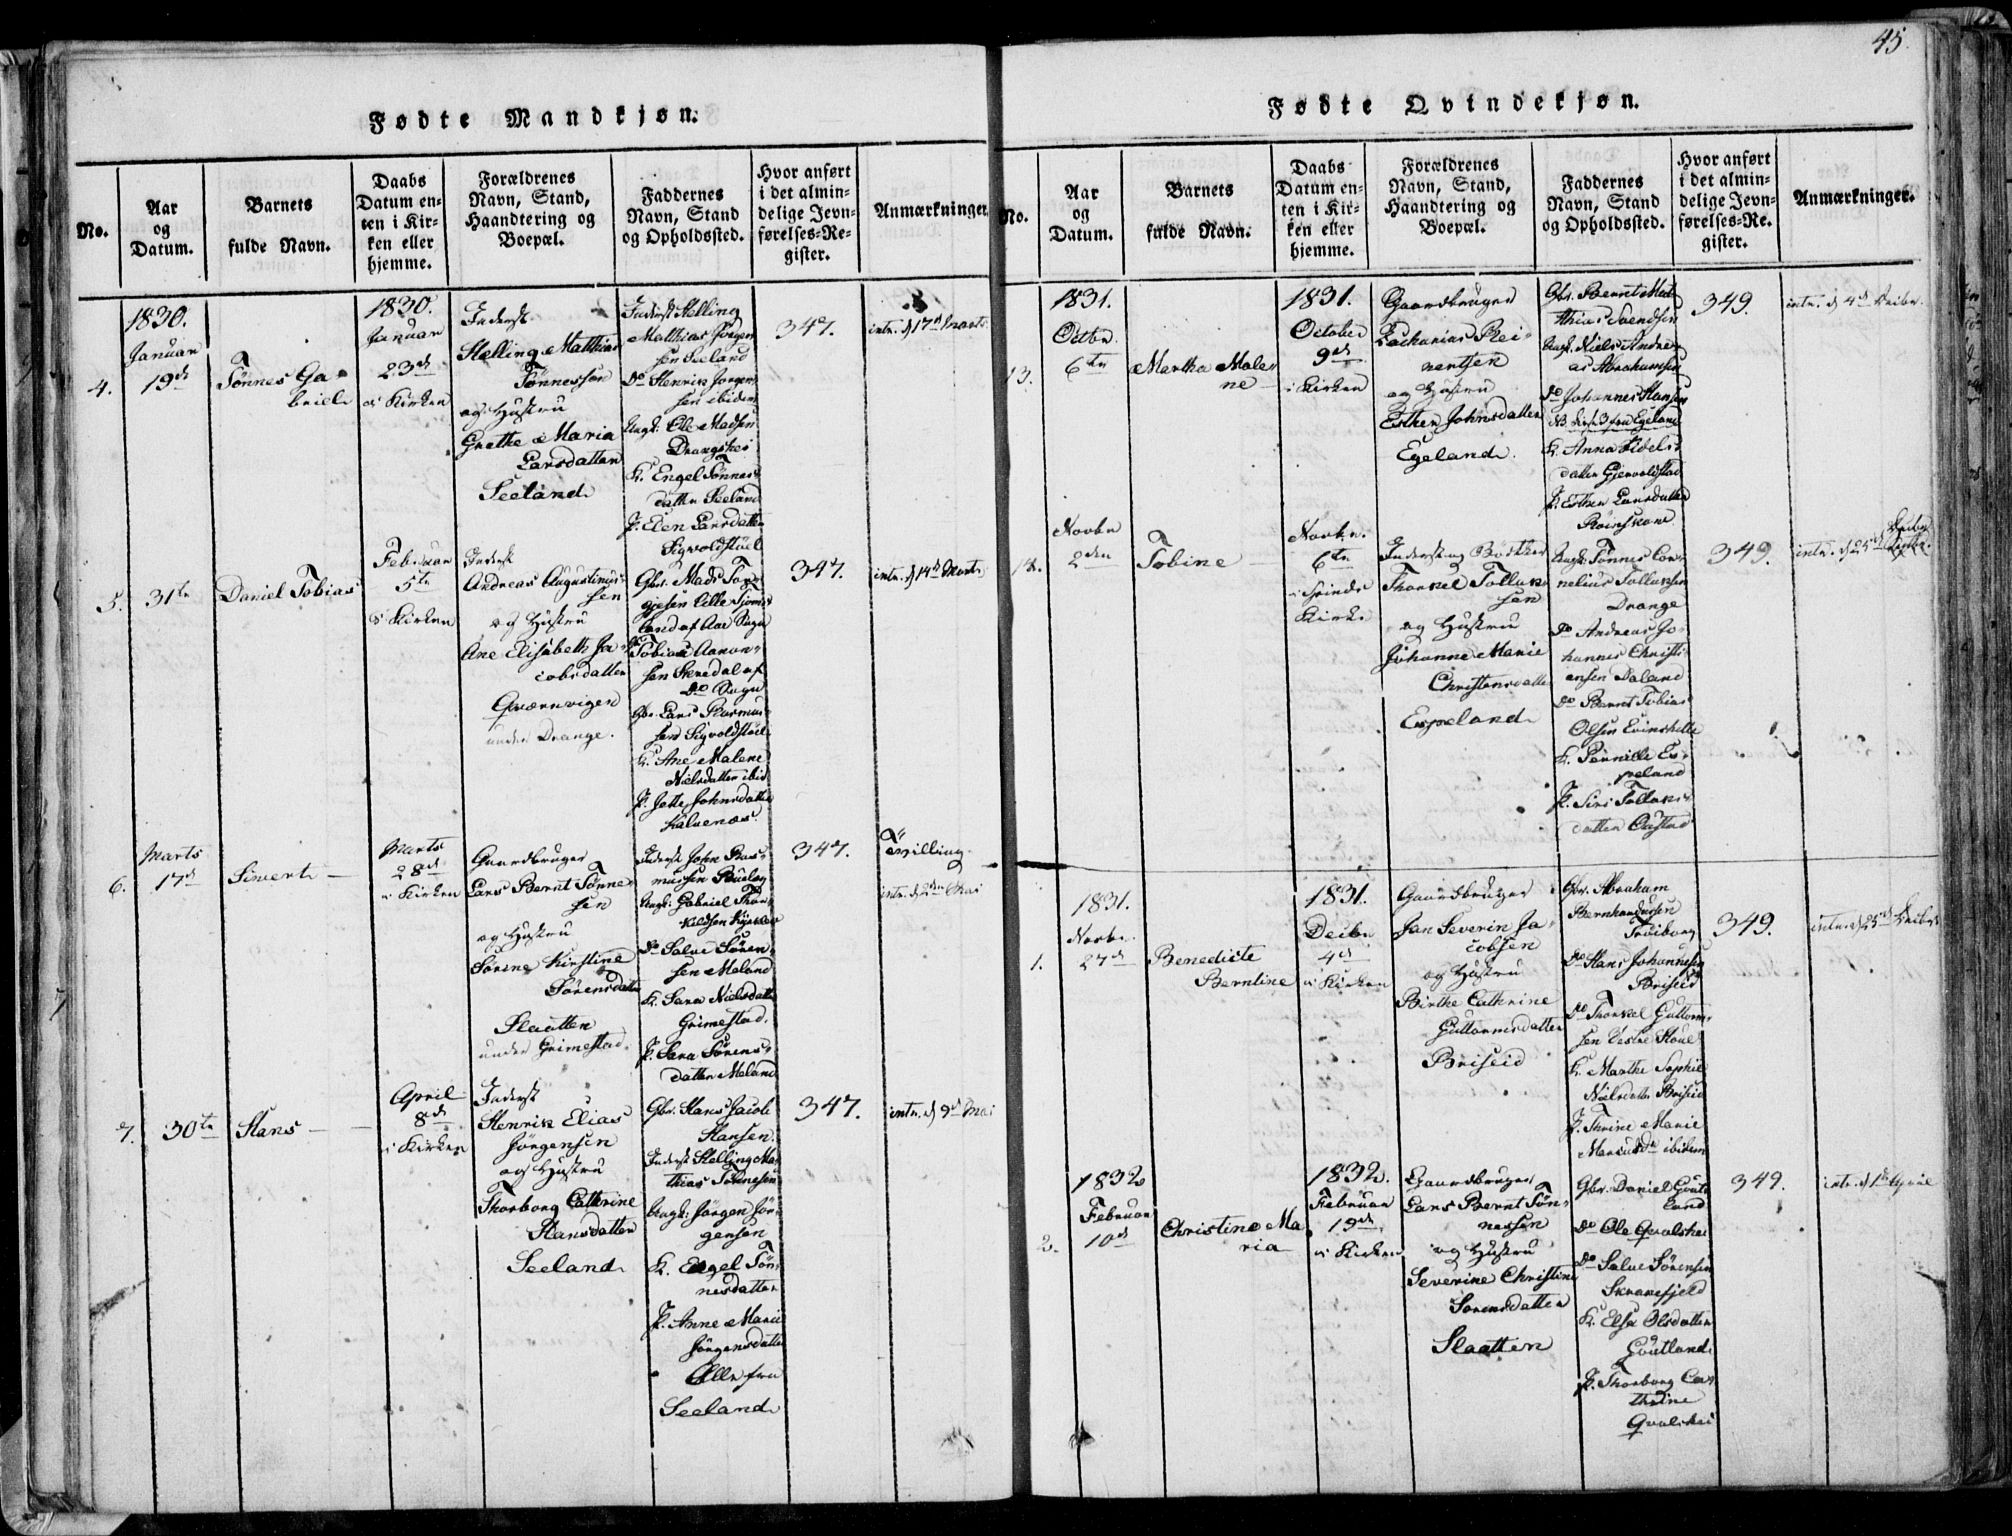 45.
Fødte Mandkjøn.
No.
Aar
og
Datum.
Barnets
fulde Navn.
Daabs
Datum en-
ten i Kir-
ken eller
hjemme.
Forældrenes
Navn, Stand,
Haandtering og
Boepæl.
Faddernes
Navn, Stand
og Opholdssted.
Hvor anført
i det almin-
delige Jevn-
førelses-Re-
gister.
Anmærkninger.
4.
1830.
Januar
19de
Tønnes Ga-
briel
1830.
Januar
23de
i Kirken
Inderst
Helling Matthias
Tønnessen
og Hustru
Grethe Maria
Larsdatter
Seeland
Inderst Helling
Matthias Jørgen-
sen Seeland
Do Henrik Jørgen-
sen ibidem
Ungk. Ole Madsen
Drangskei
K. Engel Tønnes-
datter Seeland
P. Elen Larsdatter
Sigvoldstæl
347.
intr. d 17de Marts
5.
31te
Daniel Tobias
Februar
5te
i Kirken
Inderst
Andreas Augustinus-
sen
og Hustru
Ane Elisabeth Ja-
cobsdatter
Qværnvigen
under Drange.
Gbr. Mads Tor-
gjesen Lille Sjøms-
land af Aae Sogn
Do Tobias Aanon-
sen Skredal af
Do Sogn
Gbr. Lars Rasmus-
sen Sigvoldstæl
K. Ane Malene
Nielsdatter ibid
P. Jette Johnsdatter
Kalvenæs.
347.
intr. d 14de Marts
6.
Marts
17de
Simert
Marts
28de
i Kirken
Gaardbruger
Lars Bernt Tønne-
sen
og Hustru
Sørine Kirstine
Sørensdatter
Slaatten
under Grimestad.
Inderst John Ras-
mussen
Ungk. Gabriel Thor-
kildsen
Do Salve Søren-
sen Meland
K. Sara Nielsdatter
Grimestad.
P. Sara Sørens-
datter Meland
347.
Tvilling.
intr. d 2den Mai
7.
30te
Hans
April
8de
i Kirken
Inderst
Henrik Elias
Jørgensen
og Hustru
Thorborg Cathrine
Hansdatter
Seeland
Gbr. Hans Jacob
Hansen.
Inderst Helling Ma-
thias Tønnesen
Ungk: Jørgen Jør-
gensen
K. Engel Tøn-
nesdatter
P. Anne Marie
Jörgensdatter
Alle fra
Seeland
347.
intr. d 9de Mai
Fødte Qvindekjøn.
No.
Aar
og
Datum.
Barnets
fulde Navn.
Daabs
Datum en-
ten i Kir-
ken eller
hjemme.
Forældrenes
Navn, Stand,
Haandtering og
Boepæl.
Faddernes
Navn, Stand
og Opholdssted.
Hvor anført
i det almin-
delige Jevn-
førelses-Re-
gister.
Anmærkninger.
13.
1831.
Octbr
6te
Martha Male-
ne
1831.
October
9de
i Kirken
Gaardbruger
Zacharias Rei-
nertsen
og Hustru
Esther Johnsdatter
Egeland.
Gbr. Bernt Mat-
thias Svendsen
Ungk. Niels Andre-
as Abrahamsen
Do Johannes Hansen
NB. disse 3 fra Egeland
K. Anna
datter Gjervoldstad
P. Esther Larsdatter
349.
intr. d 4de Decbr.
14.
Novbr
2den
Tobine
Novbr.
6te
i Spinds
Kirke
Inderst og Bødtker
Thorkel Tollak-
sen
og Hustru
Johanne Marie
Christensdatter
Espeland
Ungk. Tønnes Cor-
nelius Tollaksen
Drange
Do Andreas Jo-
hannes Christi-
ansen Daland
Do Bernt Tobias
Olsen Evinshille
K. Pernille Es-
peland
P. Siri Tollaks-
datter
349.
intr. d 25de Decbr.
1.
1831.
Novbr.
27de
Benedicte
Berntine
1831.
Decbr
4de
i Kirken
Gaardbruger
Jan Severin Ja-
cobsen
og Hustru
Birthe Cathrine
Guttormsdatter
Briseid
Gbr. Abraham
Bernhardusen
Frøiborg
Do Hans Johannesen
Briseid
Do Thorkel Guttorm-
sen Vestre Houe
K. Marthe Sophie
Nielsdatter Briseid
P. Thrine Marie
Mariusdr ibidem
349.
intr. d 25de Decbr
2.
1832
Februar
10de
Christine Ma
ria
1832.
Februar
19de
i Kirken
Gaardbruger
Lars Bernt Tøn-
nessen
og Hustru
Severine Christine
Sørensdatter
Slaatten
Gbr. Daniel Gout-
land
Do Ole Qvalskei
Do Salve Sørensen
Skranefjeld
K. Else Olsdatter
Goutland
P. Thorborg Ca-
thrine
Qvalskei
349.
intr. d 1ste April